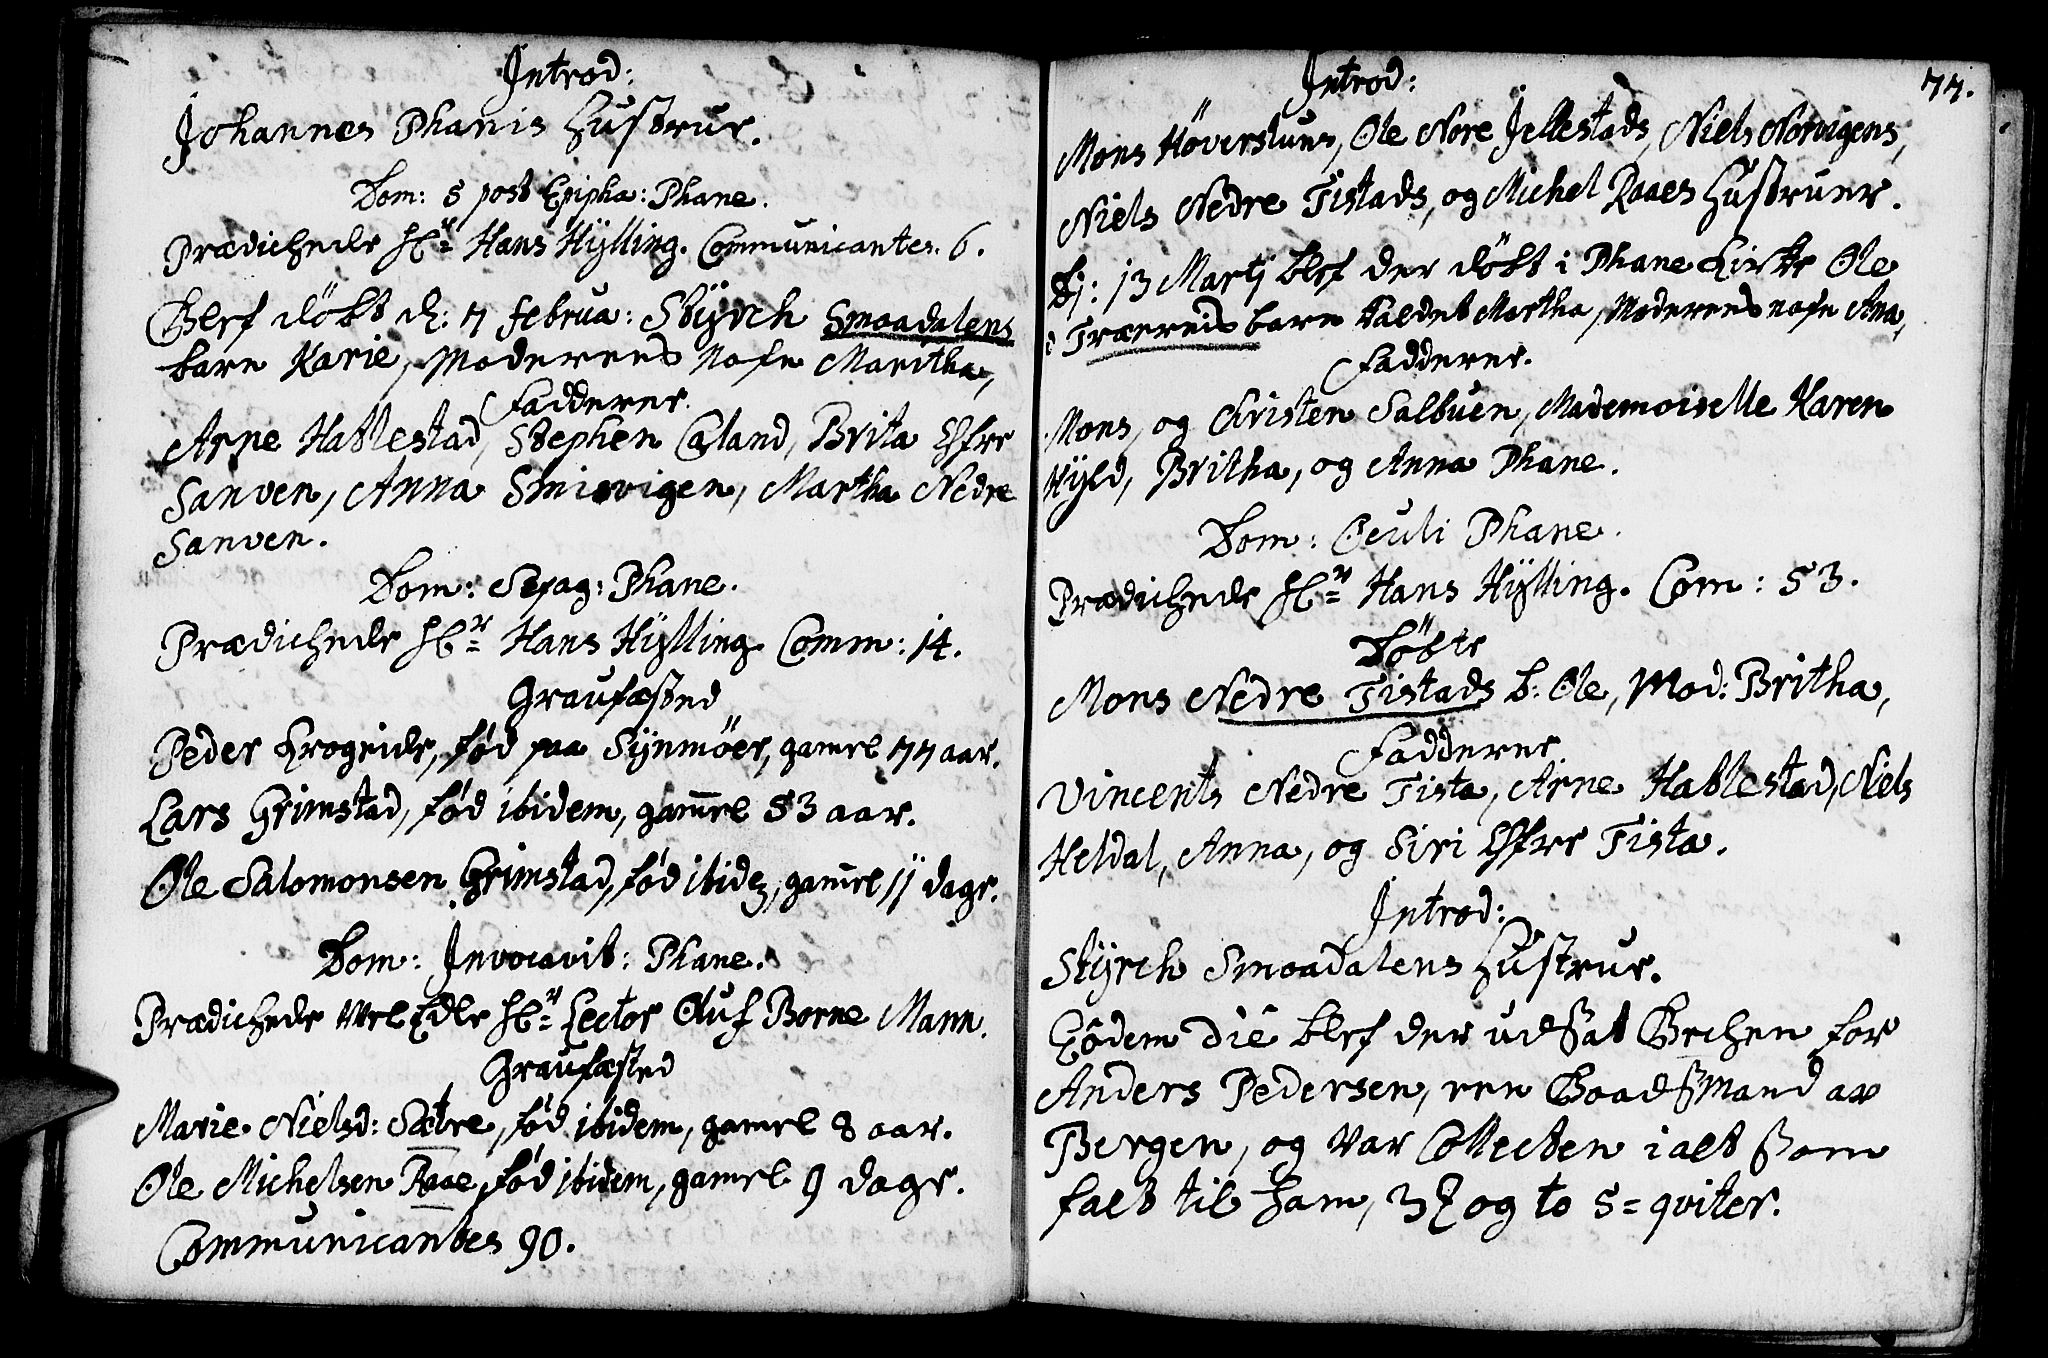 Introd:
Johannes Phanis Hustrue.
Dom: 5 post Epipha: Phane.
Prædichede Hr. Hans Hÿlling. Communicantes. 6.
Blef døbt d: 7 Februa: Stÿrch Smoadalens
barn Karie, Moderens Nafn Maritha,
Fadderne.
Arne Hatlestad, Stephen Caland, Brita Øfre
Sanven, Anna Smisvigen, Martha Nedre
Sanven.
Dom: Sepag: Phane.
Prædichede Hr. Hans Hÿlling. Comm: 14.
Graufæsted
Peder Krogeide, fød paa Sÿnmöer, gamel 77 aar.
Lars Grimstad, fød ibidem, gam̄el 53 aar.
Ole Salomonsen Grimstad, fød ibidē, gam̄el 11 dage.
Dom: Invocavit: Phane.
Prædichede Vel Edle Hr. Lector Oluf Borne Mann.
Graufæsted
Marie Nielsd: Sætre, fød ibidem, gamel 8 aar.
Ole Michelsen Raae, fød ibidem, gamel 9 dage.
Communicantes 90.
77.
Introd:
Mons Høverstuns, Ole Nore Jellestads, Niels Norvigens,
Niels Nedre Tistads, og Michel Raaes Hustruer.
D: 13 Martj blef der døbt i Phane Kirke Ole
Træereids barn kaldet Martha, Moderens nafn Ana,
Fadderne.
Mons, og Kristen Salbuen, Mademoiselle Karen
Hÿld, Britha, og Anna Phane.
Dom: Oculi Phane.
Prædichede Hr. Hans Hÿlling. Com: 53.
Døbte
Mons Nedre Tistads b: Ole, Mod: Britha,
Fadderne
Vincents Nedre Tista, Arne Hatlestad, Niels
Heldal, Anna, og Siri Øfre Tista.
Introd:
Stÿrch Smoadalens Hustrue.
Eôdem Diê blef der udsat Bechen for
Anders Pedersen, een Baadsmand av
Bergen, og var Collecten i alt som
falt til ham, 3 og to 5= qviter.